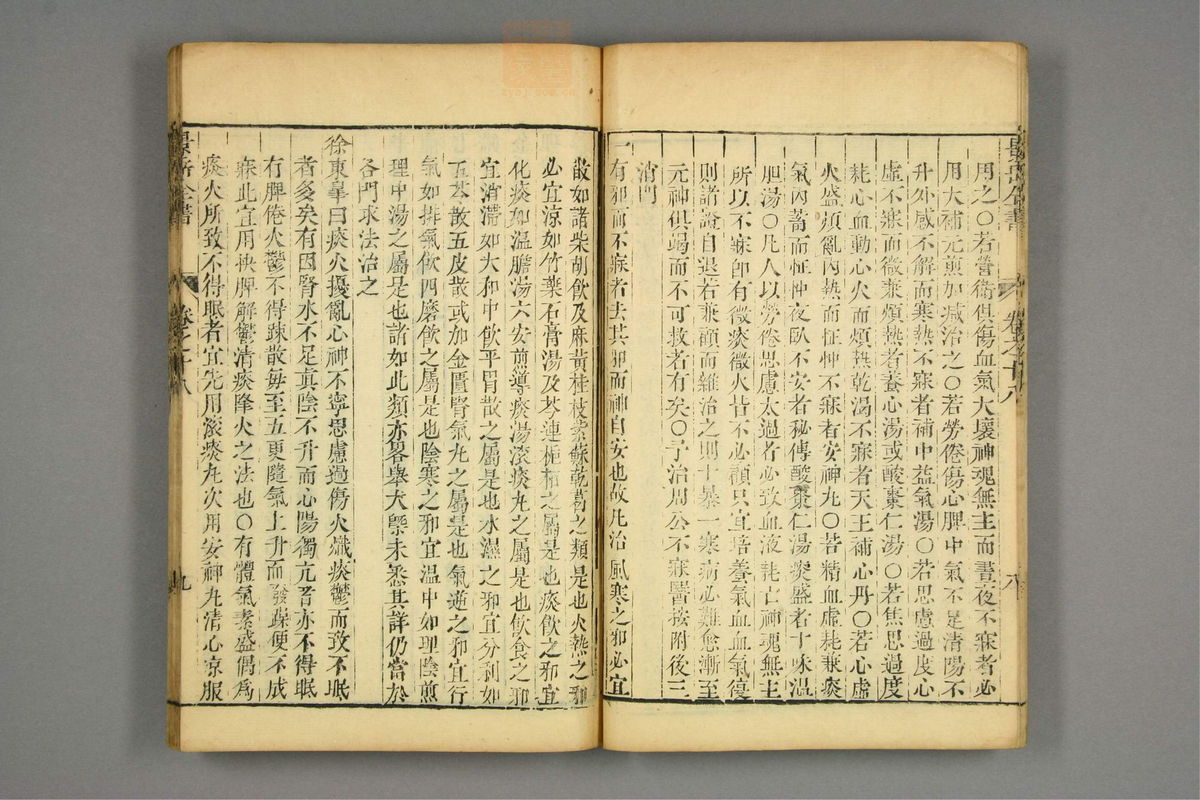 景岳全書
卷之十八
八
用之〇若營衛俱傷血氣大壞神魂無主而晝夜不寐者必
用大補元煎加減治之〇若勞倦傷心脾中氣不足清陽不
升外感不解而寒熱不寐者補中益氣湯〇若思慮過度心
虛不寐而微兼煩熱者養心湯或酸棗仁湯〇若焦思過度
耗心血動心火而煩熱乾渴不寐者天王補心丹〇若心虛
火盛煩亂內熱而怔忡不寐者安神丸〇若精血虛耗兼痰
氣內蓄而怔忡夜臥不安者秘傳酸棗仁湯痰盛者十味溫
胆湯〇凡人以勞倦思慮太過者必致血液耗亡神魂無主
所以不寐卽有微痰微火皆不必顧只宜培養氣血血氣復
則諸證自退若兼顧而雜治之則十暴一寒病必難愈漸至
元神俱竭而不可救者有矣〇予治周公不寐醫按附後三
消門
一有邪而不寐者去其邪而神自安也故凡治風寒之邪必宜
散如諸柴胡飲及麻黃桂枝紫蘇乾葛之類是也火熱之邪
必宜涼如竹葉石膏湯及芩連梔柏之屬是也痰飲之邪宜
化痰如溫膽湯六安煎導痰湯滾痰丸之屬是也飲食之邪
宜消滯如大和中飲平胃散之屬是也水濕之邪宜分利如
五苓散五皮散或加金匱腎氣丸之屬是也氣逆之邪宜行
氣如排氣飲四磨飲之屬是也陰寒之邪宜溫中如理陰煎
理中湯之屬是也諸如此類亦畧舉大槩未悉其詳仍當於
各門求法治之
徐東皋曰痰火擾亂心神不寧思慮過傷火熾痰鬱而致不眠
者多矣有因腎水不足眞陰不升而心陽獨亢者亦不得眠
有脾倦火鬱不得疎散每至五更隨氣上升而發躁便不成
寐此宜用快脾解鬱清痰降火之法也〇有體氣素盛偶爲
痰火所致不得眠者宜先用滾痰丸次用安神丸清心凉服
景岳全書
卷之十八
九